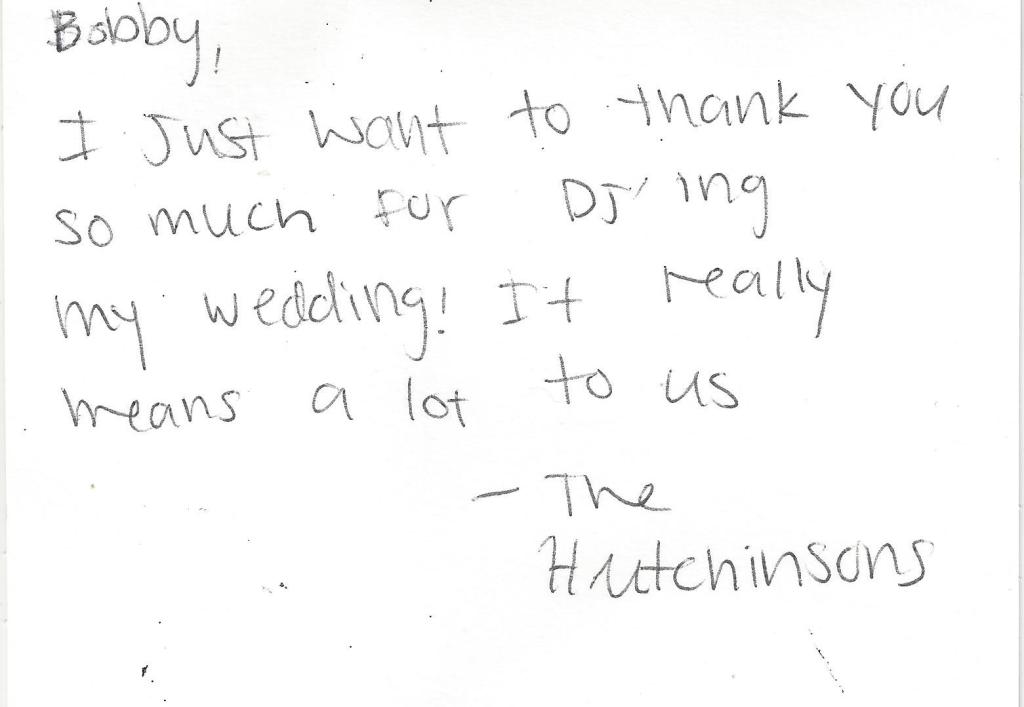 Bobby,
I Just want to thank you
so much for DJ'ing
my wedding! It really
means a lot to us
- The
Hutchinsons